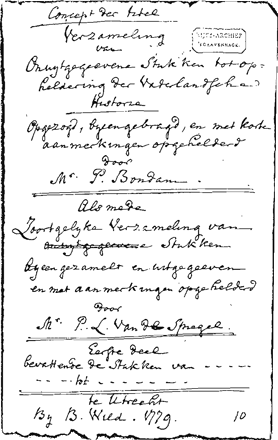 Concept der titel
RIJKS-ARCHIEF
'S GRAVENHAGE.
Verzameling
van
Onuytgegeevene Stukken tot op-
heldering der Vaderlandsche
Historie
Opgezogd, byeengebragd, en met korte
aanmerkingen opgehelderd
door
Mr. P. Bondam.
Als mede
Zoortgelyke Verzameling van
onuytgegeevene Stukken
byeengezamelt en uitgegeeven
en met aanmerkingen opgehelderd
door
Mr. P. L. Van de Spiegel.
Eerste deel
bevattende de Stukken van - - - - -
- - - - - tot - - - - - - - -
te Utrecht
By B. Wild. 1779. 10